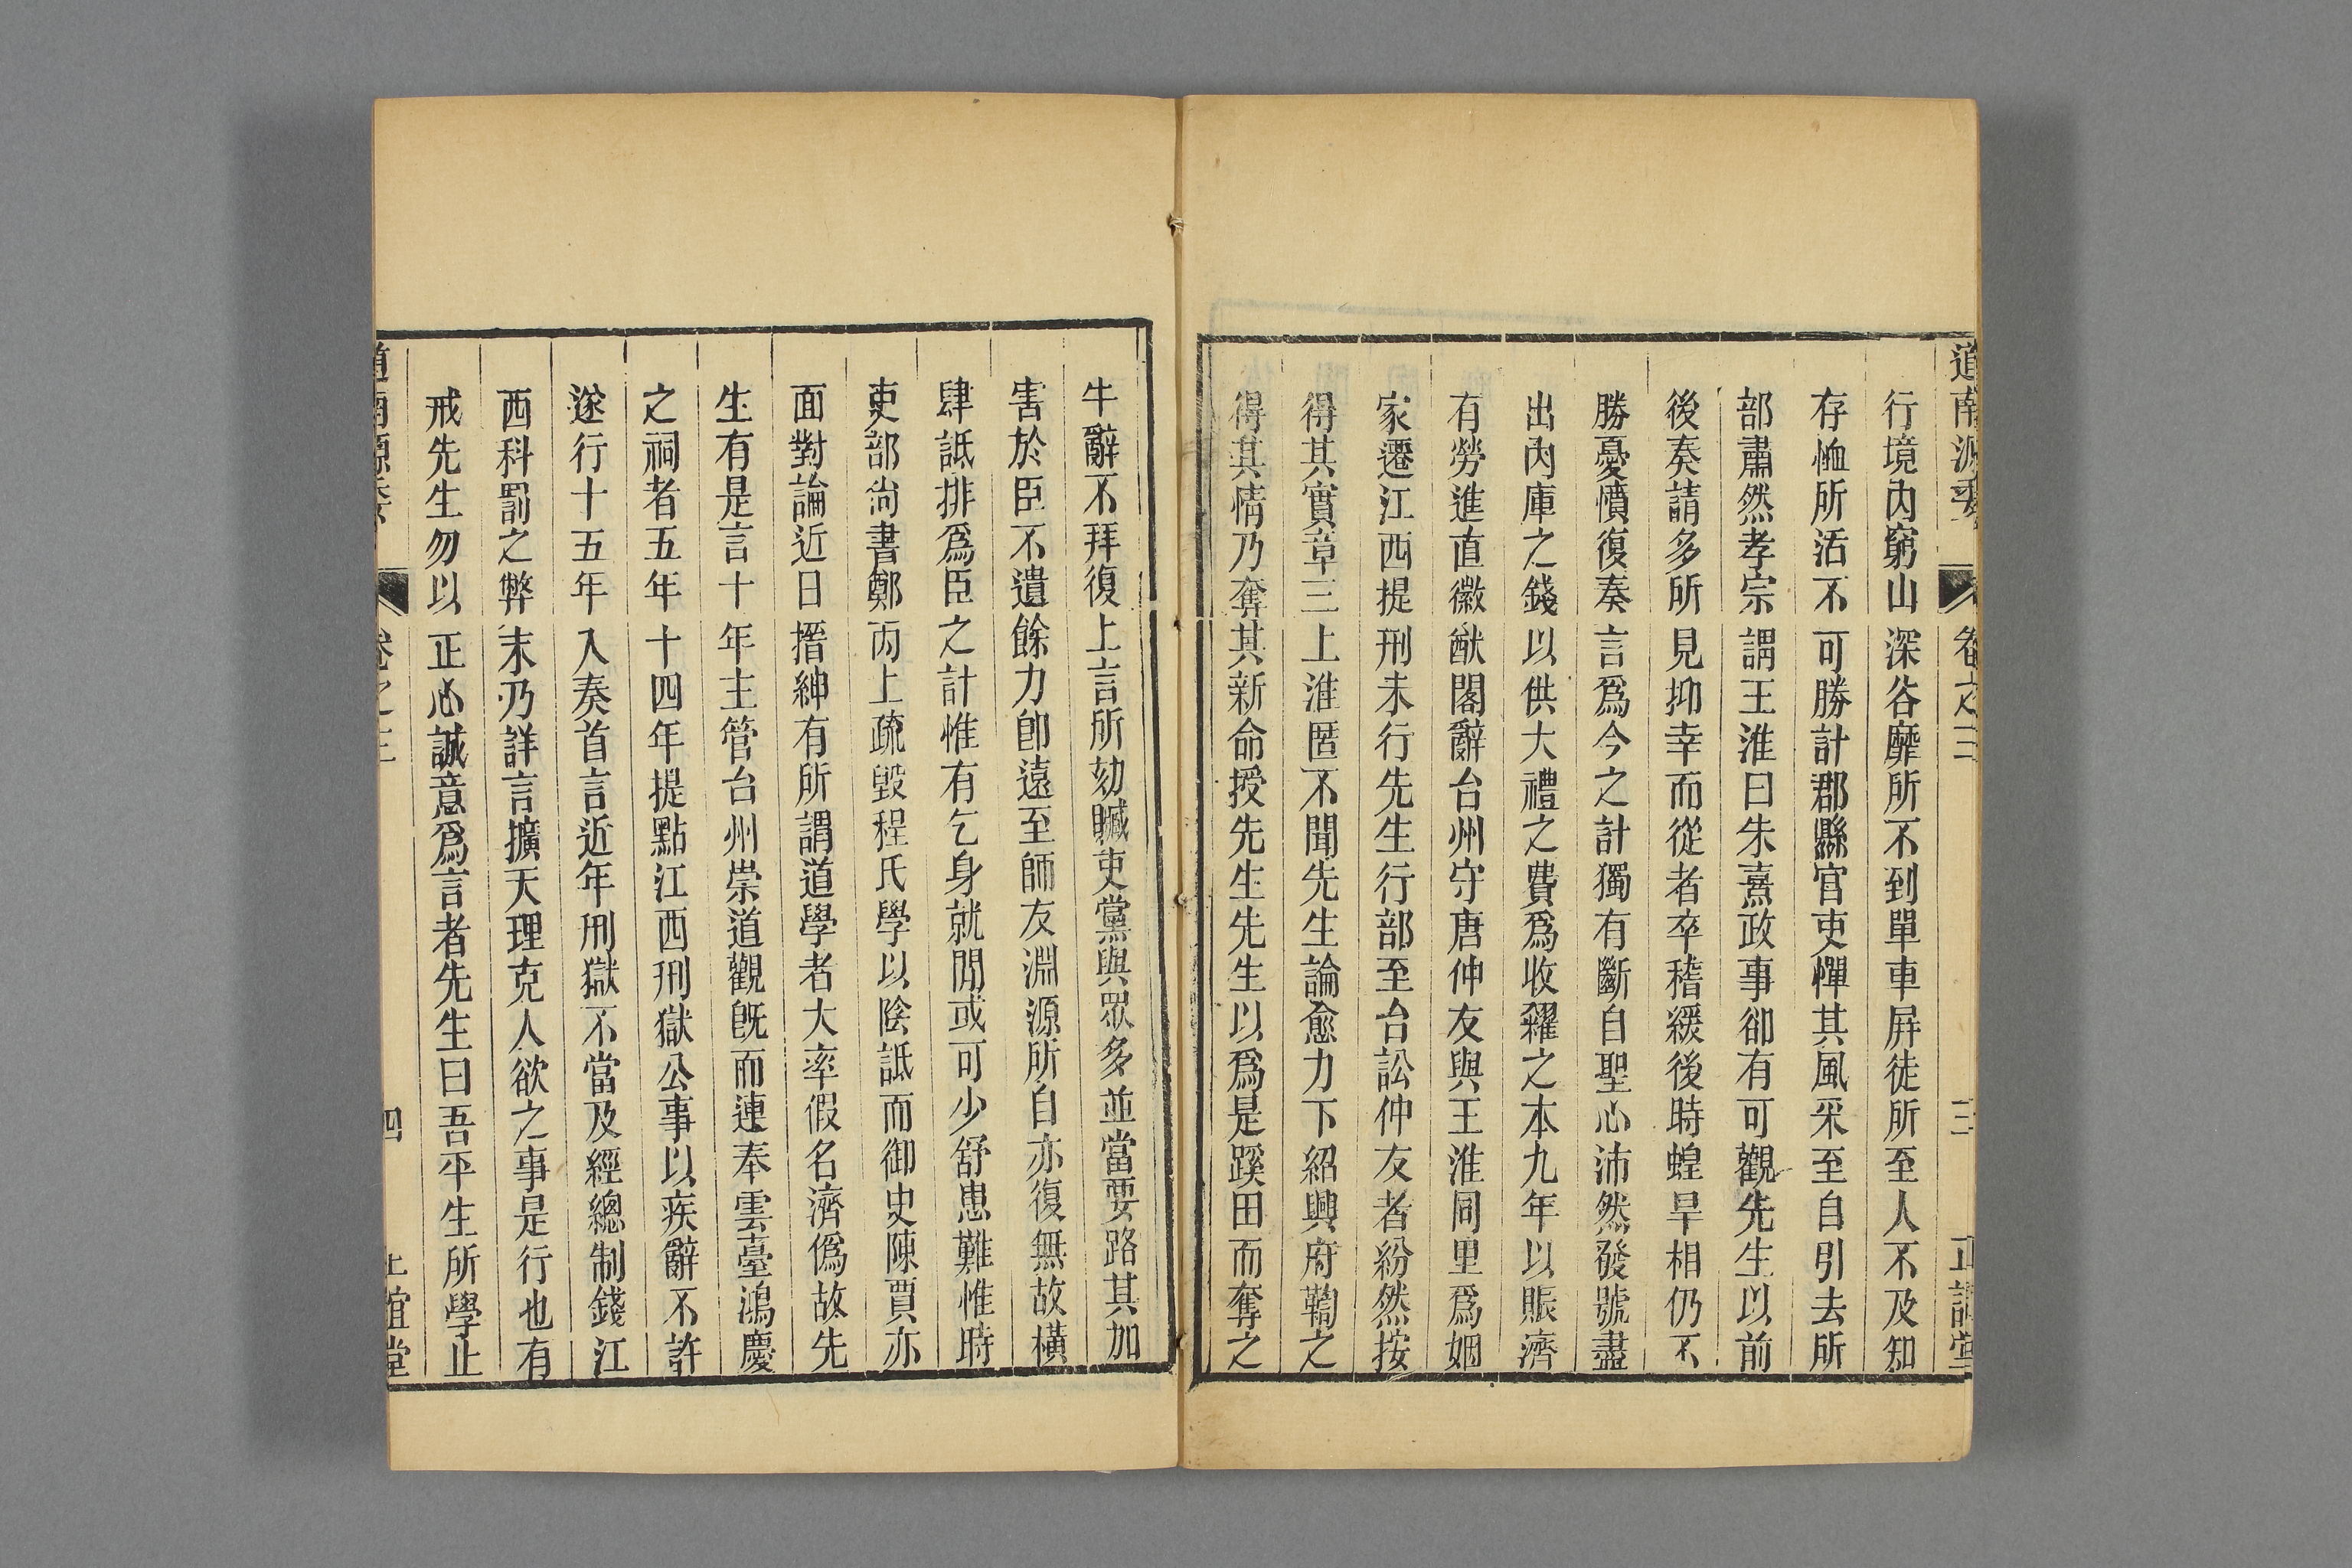 道南源委 卷之三 三 正誼堂
行境內窮山深谷靡所不到單車屏徒所至人不及知
存恤所活不可勝計郡縣官吏憚其風采至自引去所
部肅然孝宗謂王淮曰朱熹政事卻有可觀先生以前
後奏請多所見抑幸而從者卒稽緩後時蝗旱相仍不
勝憂憤復奏言爲今之計獨有斷自聖心沛然發號盡
出內庫之錢以供大禮之費爲收糴之本九年以賑濟
有勞進直徽猷閣辭台州守唐仲友與王淮同里爲姻
家遷江西提刑未行先生行部至台訟仲友者紛然按
得其實章三上淮匿不聞先生論愈力下紹興府鞫之
得其情乃奪其新命授先生先生以爲是蹊田而奪之
牛辭不拜復上言所劾贓吏黨與眾多並當要路其加
害於臣不遺餘力卽遠至師友淵源所自亦復無故橫
肆詆排爲臣之計惟有乞身就閒或可少舒患難惟時
吏部尙書鄭丙上疏毀程氏學以陰詆而御史陳賈亦
面對論近日搢紳有所謂道學者大率假名濟僞故先
生有是言十年主管台州崇道觀旣而連奉雲臺鴻慶
之祠者五年十四年提點江西刑獄公事以疾辭不許
遂行十五年入奏首言近年刑獄不當及經總制錢江
西科罰之弊末乃詳言擴天理克人欲之事是行也有
戒先生勿以正心誠意爲言者先生曰吾平生所學止
道南源委 卷之三 四 正誼堂